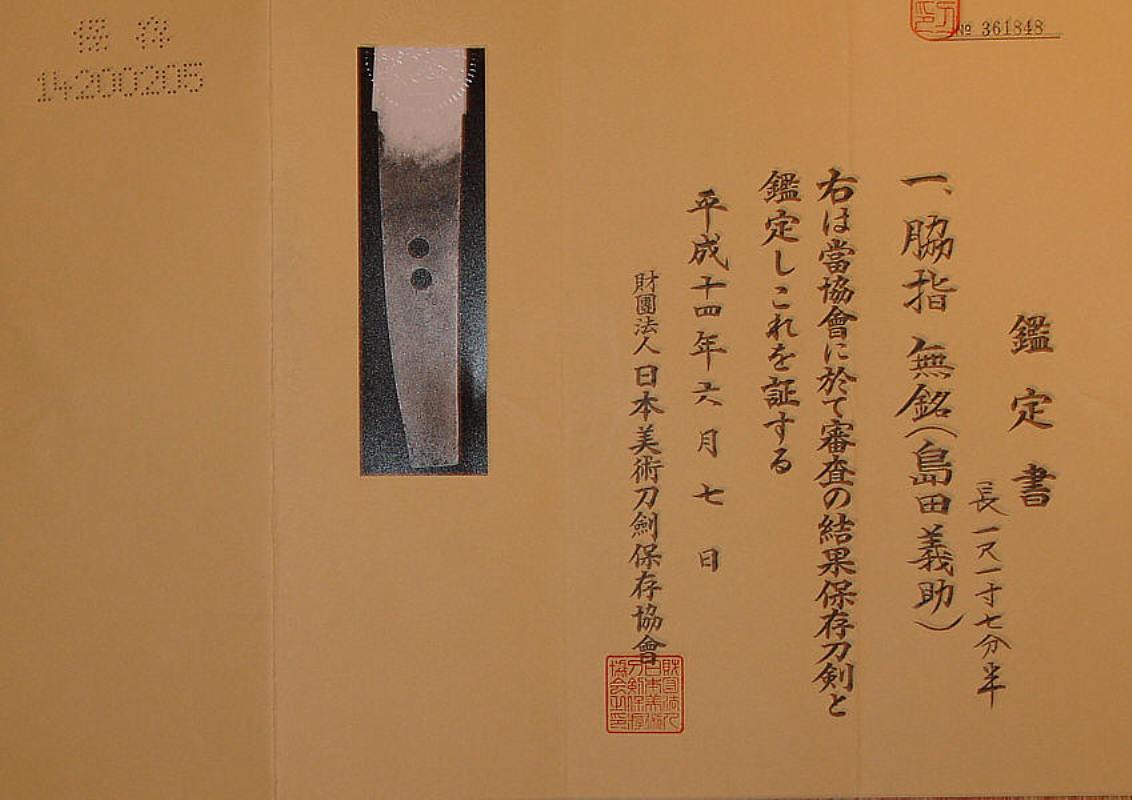 № 361848
鑑定書
長一尺一寸七分半
一、脇指 無銘(島田義助)
右は當協會に於て審査の結果保存刀剣と
鑑定しこれを証する
平成十四年六月七日
財團法人日本美術刀劍保存協會
保存
14200205